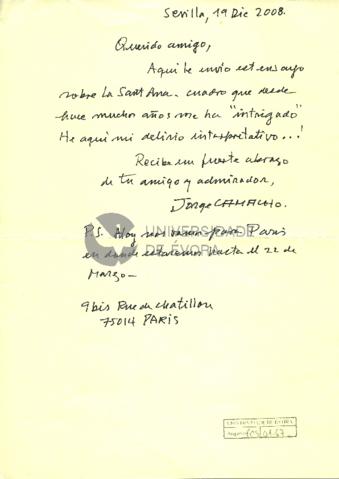 Sevilla, 19 Dic 2008.
Querido amigo,
Aquí te envío este ensayo
sobre La Sant'Ana. cuadro que desde
hace muchos años me ha "intrigado"
He aquí mi delirio interpretativo...!
Recibe un fuerte abrazo
de tu amigo y admirador,
Jorge CAMACHO.
P.S. Hoy nos vamos para Paris
en donde estaremos hasta el 22 de
Marzo-
9bis Rue de Chatillon
75014 PARIS
UNIVERSIDADE
DE ÉVORA